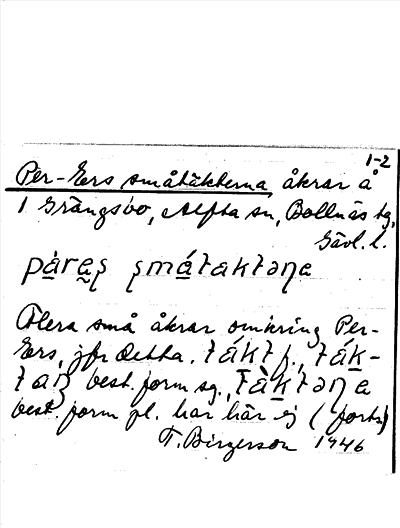 1-2
Per-Ers småtäkterna, åkrar å
1 Grängsbo, Alfta sn, Bollnäs tg,
Gävl. l.
pàræş şmátaktəηe
Flera små åkrar omkring Per-
Ers, jfr detta. tákt f., ták-
taη best. form sg., tàktəηe
best. form pl. har här ej (forts.)
T. Birgerson 1946